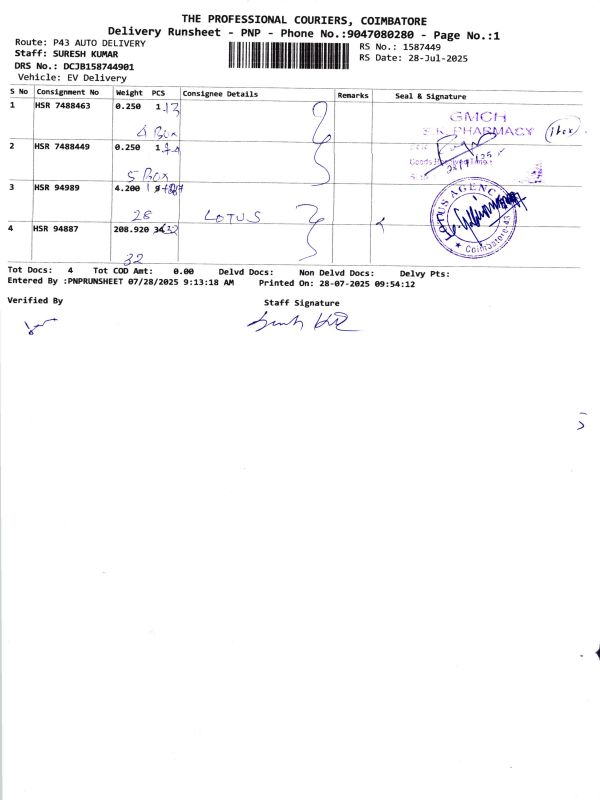 THE PROFESSIONAL COURIERS, COIMBATORE
Delivery Runsheet - PNP - Phone No.:9047080280 - Page No.:1
Route: P43 AUTO DELIVERY
Staff: SURESH KUMAR
DRS No.: DCJB158744901
Vehicle: EV Delivery
RS No.: 1587449
RS Date: 28-Jul-2025
S No Consignment No Weight PCS Consignee Details Remarks Seal & Signature
1 HSR 7488463 0.250 1 13
4 Box
GMCH
S.K. PHARMACY
2 HSR 7488449 0.250 1
5 Box
Goods
3 HSR 94989 4.200
28 LOTUS
LOTUS AGENC
Coimbatore-43
4 HSR 94887 208.920 32
32
Tot Docs: 4 Tot COD Amt: 0.00 Delvd Docs: Non Delvd Docs: Delvy Pts:
Entered By :PNPRUNSHEET 07/28/2025 9:13:18 AM Printed On: 28-07-2025 09:54:12
Verified By Staff Signature